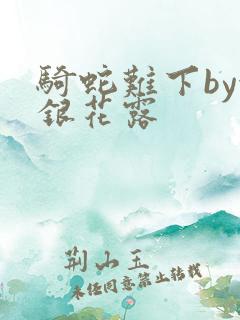 騎蛇難下by
銀花露
荆山玉
未经同意禁止转载